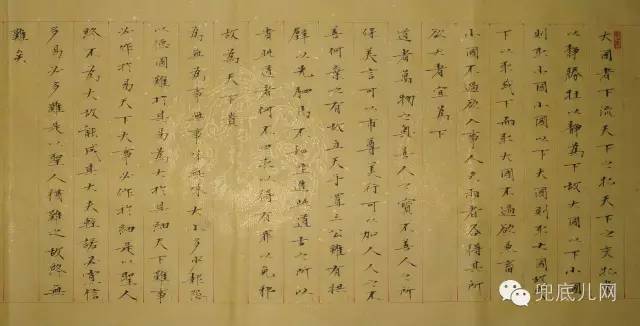 大國者下流天下之牝天下之交牝常
以靜勝牡以靜為下故大國以下小國
則取小國小國以下大國則取大國故
下以取或下而取大國不過欲兼畜
小國不過欲入事人夫兩者各得其所
欲大者宜為下
道者萬物之奧善人之寶不善人之所
保美言可以市尊美行可以加人人之不
善何棄之有故立天子置三公雖有拱
璧以先駟馬不如坐進此道古之所以
貴此道者何不曰求以得有罪以免邪
故為天下貴
為無為事無事味無味大小多少報怨
以德圖難於其易為大於其細天下難事
必作於易天下大事必作於細是以聖人
終不為大故能成其大夫輕諾必寡信
多易必多難是以聖人猶難之故終無
難矣
兜底儿网